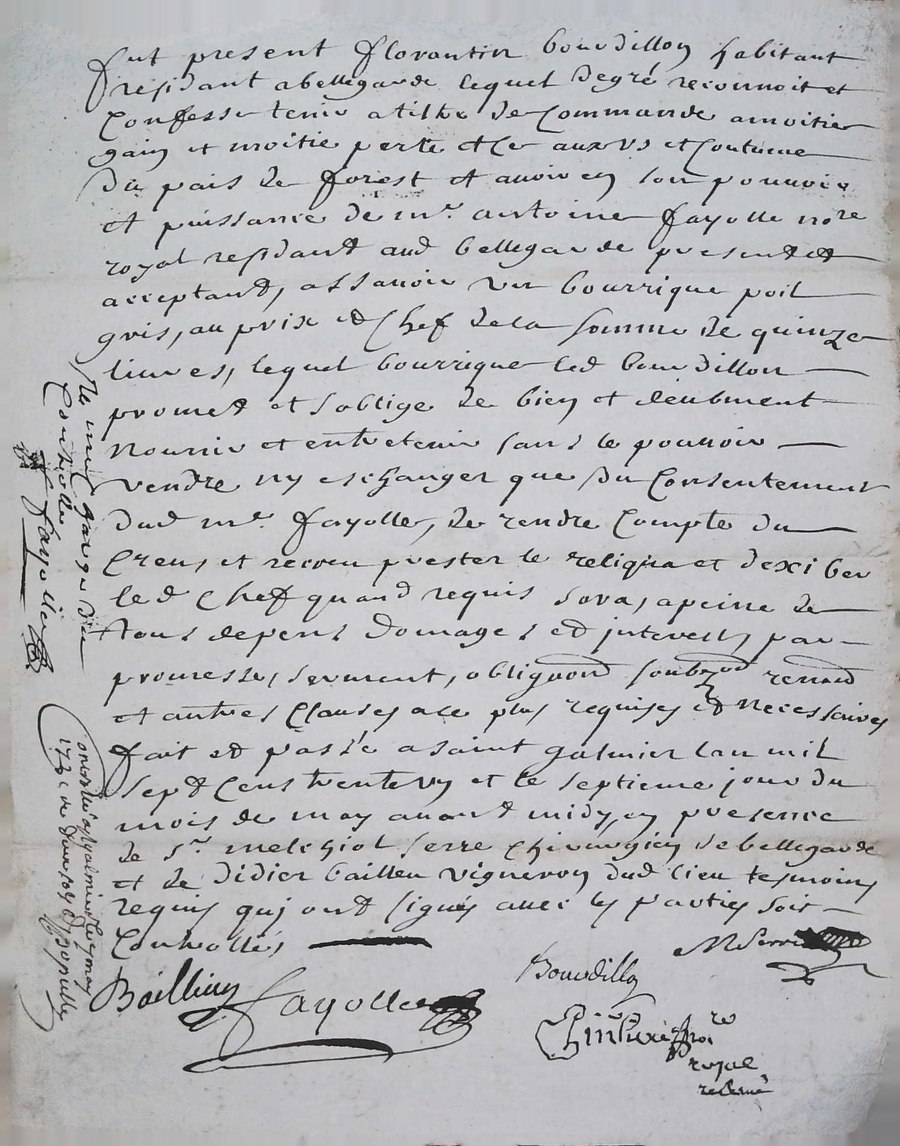 fut present florantin bourdillon habitant
residant a bellegarde lequel degré reconnoit et
Confesse tenir a tiltre de Commande a moitier
gain et moitie perte et ce aux us et Coutume
du pais de forest et avoir en son pouvoir
et puissance de mr. antoine fayolle nore
royal residant aud bellegarde present et
acceptant, assavoir un bourrique poil
gris, au prix et Chef de la somme de quinze
livres, lequel bourrique led bourdillon
promet et soblige de bien et deubment
nourrir et entretenir sans le pouvoir
vendre ny eschanger que du Consentement
dud mr. fayolle, de rendre Compte du
Creus et recreu prester le reliqua et dexiber
led Chef quand requis sera, a peine de
tous depens domages et interests, par
promesse, serment, obligaond soubzon renond
et autres Clauses a ce plus requises et necessaires
fait et passé a saint galmier lan mil
sept Cens trente un et le septieme jour du
mois de may avant midy, en presence
de sr. melchiol serre chirurgien de bellegarde
et de Didier baillen vigneron dud lieu tesmoins
requis qui ont signés avec les parties soit
Controllés
MSerre
Bourdilloy
Bailleuy
fayolle
nore
royal
reservé
fayolle
Controllé a St galmier